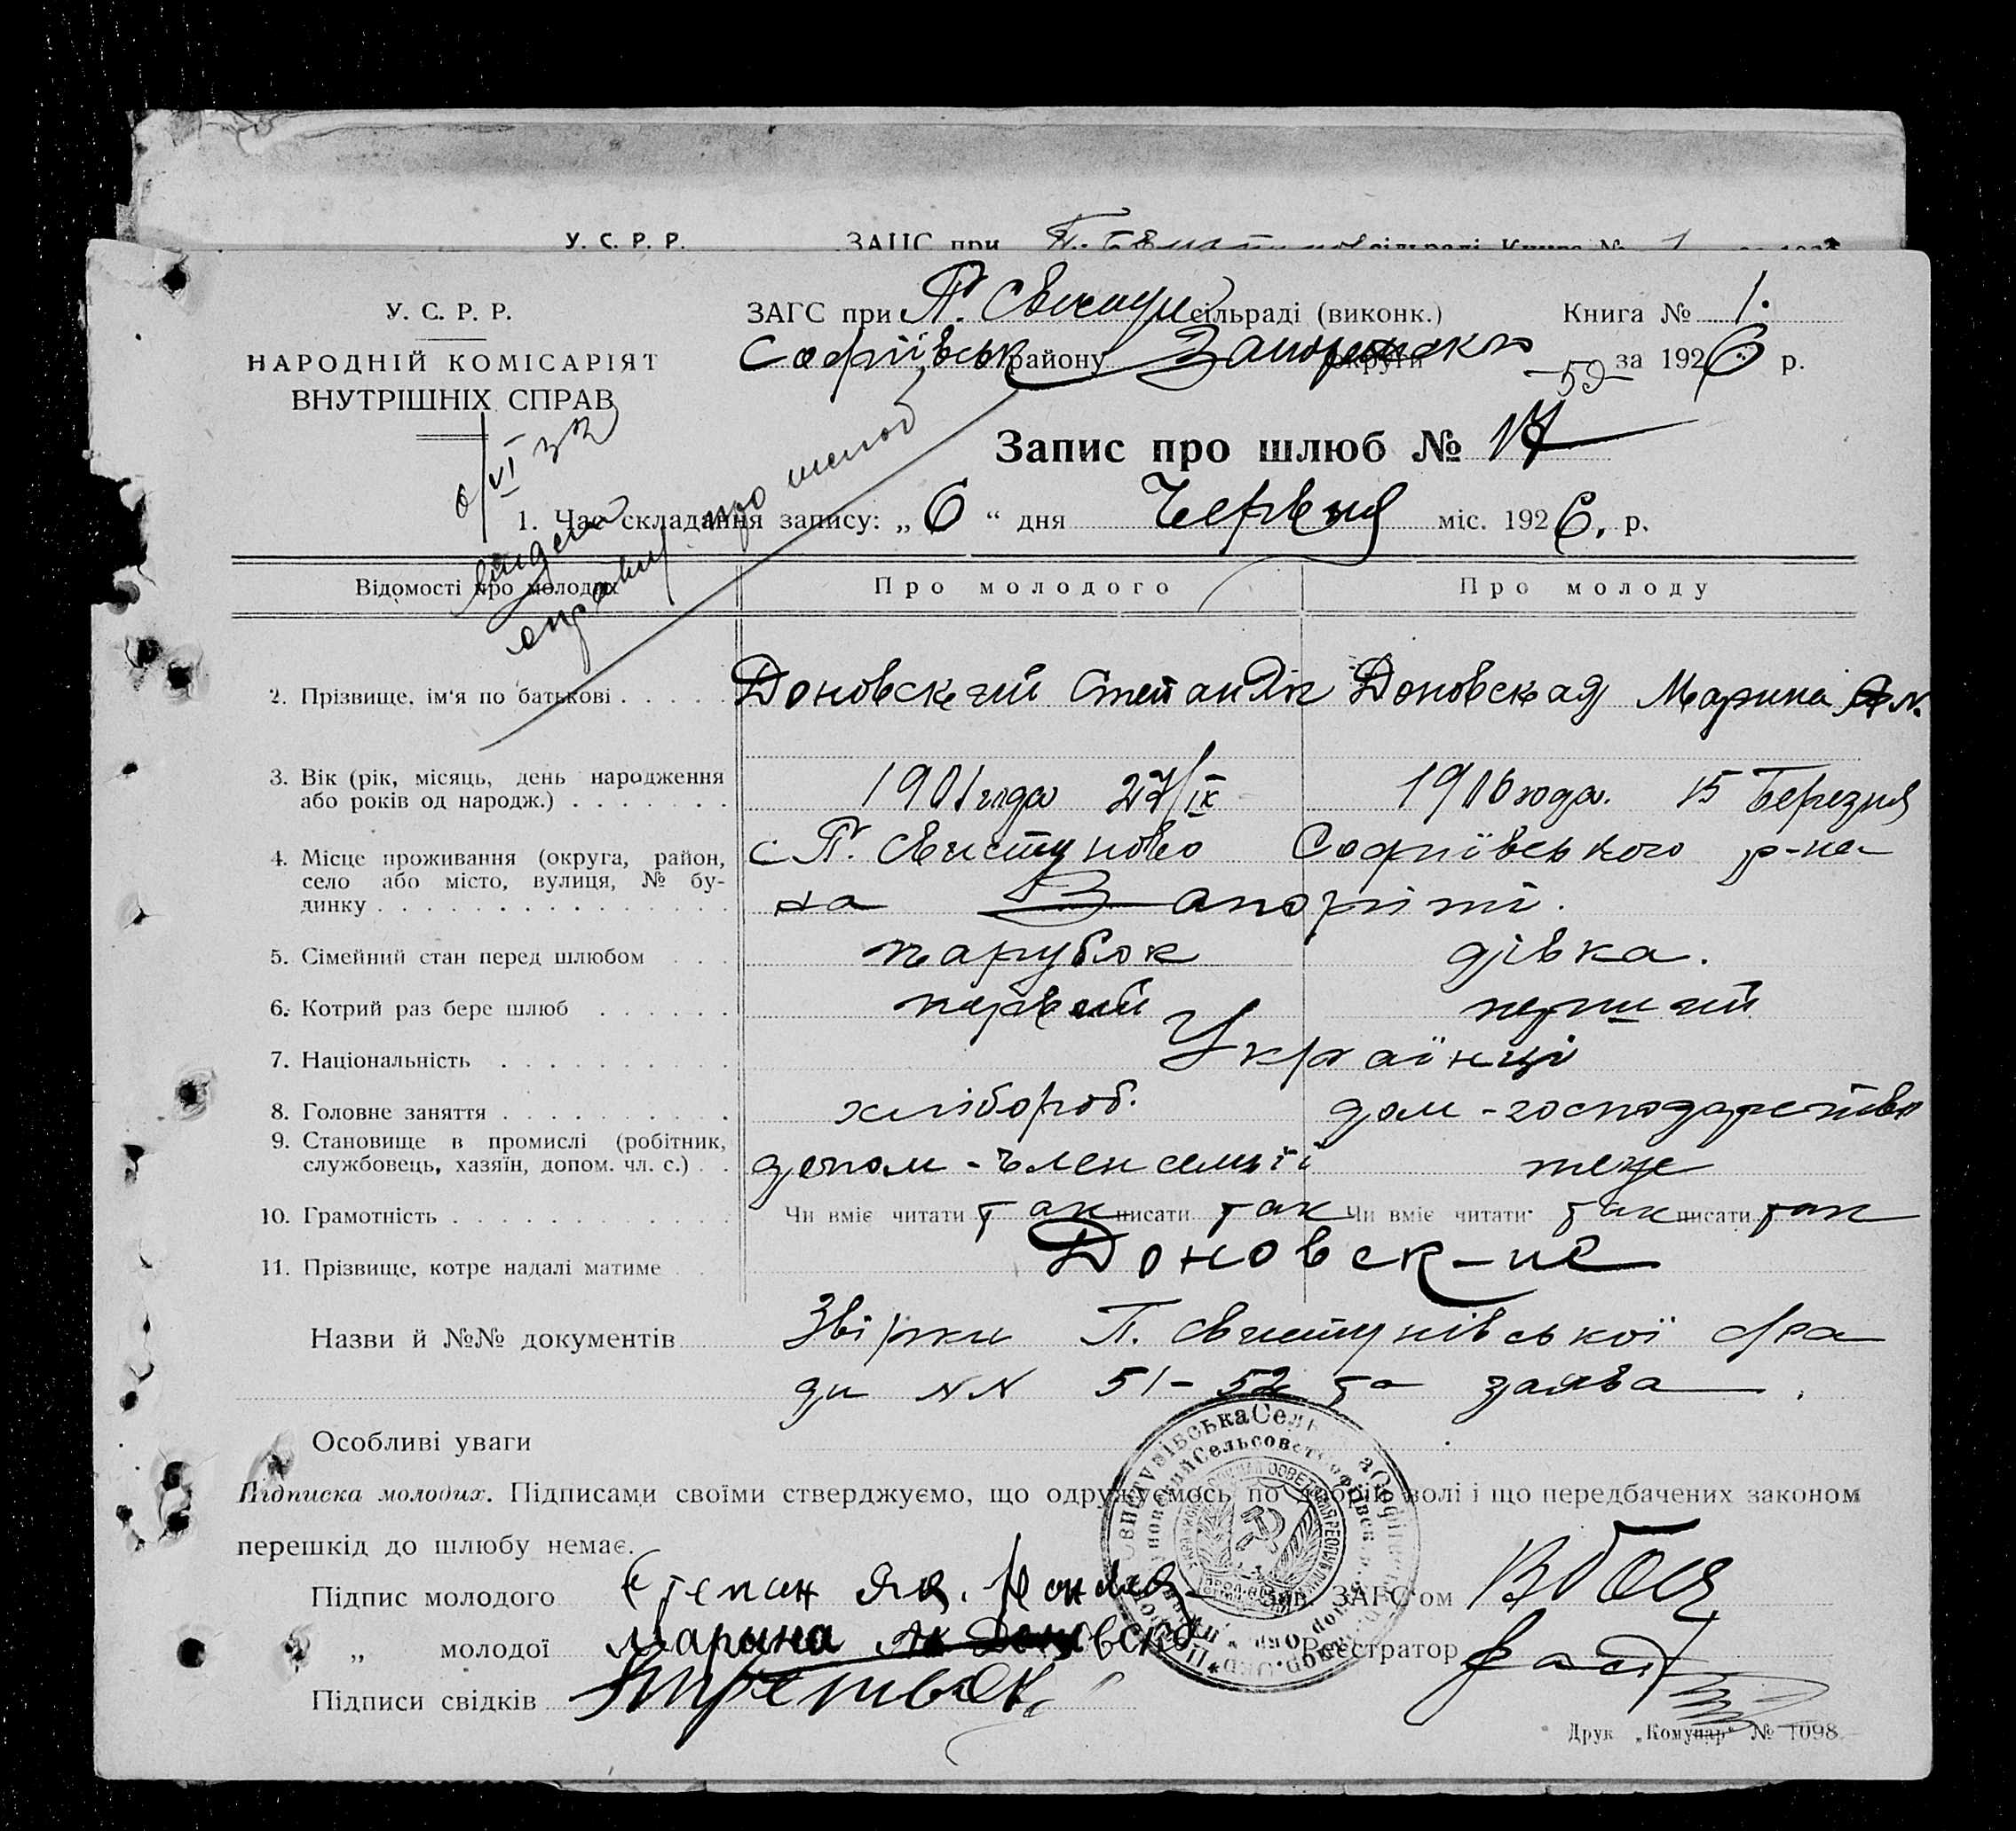 У. С. Р. Р. ЗАГС при сільраді Книга № 1
У. С. Р. Р.
НАРОДНІЙ КОМІСАРІЯТ
ВНУТРІШНІХ СПРАВ
ЗАГС при П. Свистун сільраді (виконк.) Книга № 1.
Софіївськ району Запорожско округи за 1926 р.
-59-
Запис про шлюб № 17
6/VI 32
про шлюб
1. Час складання запису: „ 6 “ дня Червня міс. 1926. р.
Відомості про молодих Про молодого Про молоду
2. Прізвище, ім'я по батькові Доновский Степан Як Доновская Марина Як.
3. Вік (рік, місяць, день народження
або років од народж.) 1901 года 27/IX 1906 года. 15 Березня
4. Місце проживання (округа, район, с П. Свистуново Софиївського р-на
село або місто, вулиця, № бу-
динку на Запоріжі.
5. Сімейний стан перед шлюбом парубок дівка.
6. Котрий раз бере шлюб первий перший
7. Національність Українці
8. Головне заняття хлібороб. дом-господарство
9. Становище в промислі (робітник,
службовець, хазяїн, допом. чл. с.) допом-член семьїі теже
10. Грамотність Чи вміє читати так писати так Чи вміє читати так писати так
11. Прізвище, котре надалі матиме Доновск-ие
Назви й №№ документів Звірки П. Свистунівської с/ра
ди NN 51-52 та заява.
Особливі уваги
Підписка молодих. Підписами своїми стверджуємо, що одружуємось по добрій волі і що передбачених законом
перешкід до шлюбу немає.
Підпис молодого Степан Як. Зав. ЗАГС'ом
„ молодої Марина Як Реєстратор
Підписи свідків
Друк „Комунар“ № 1098